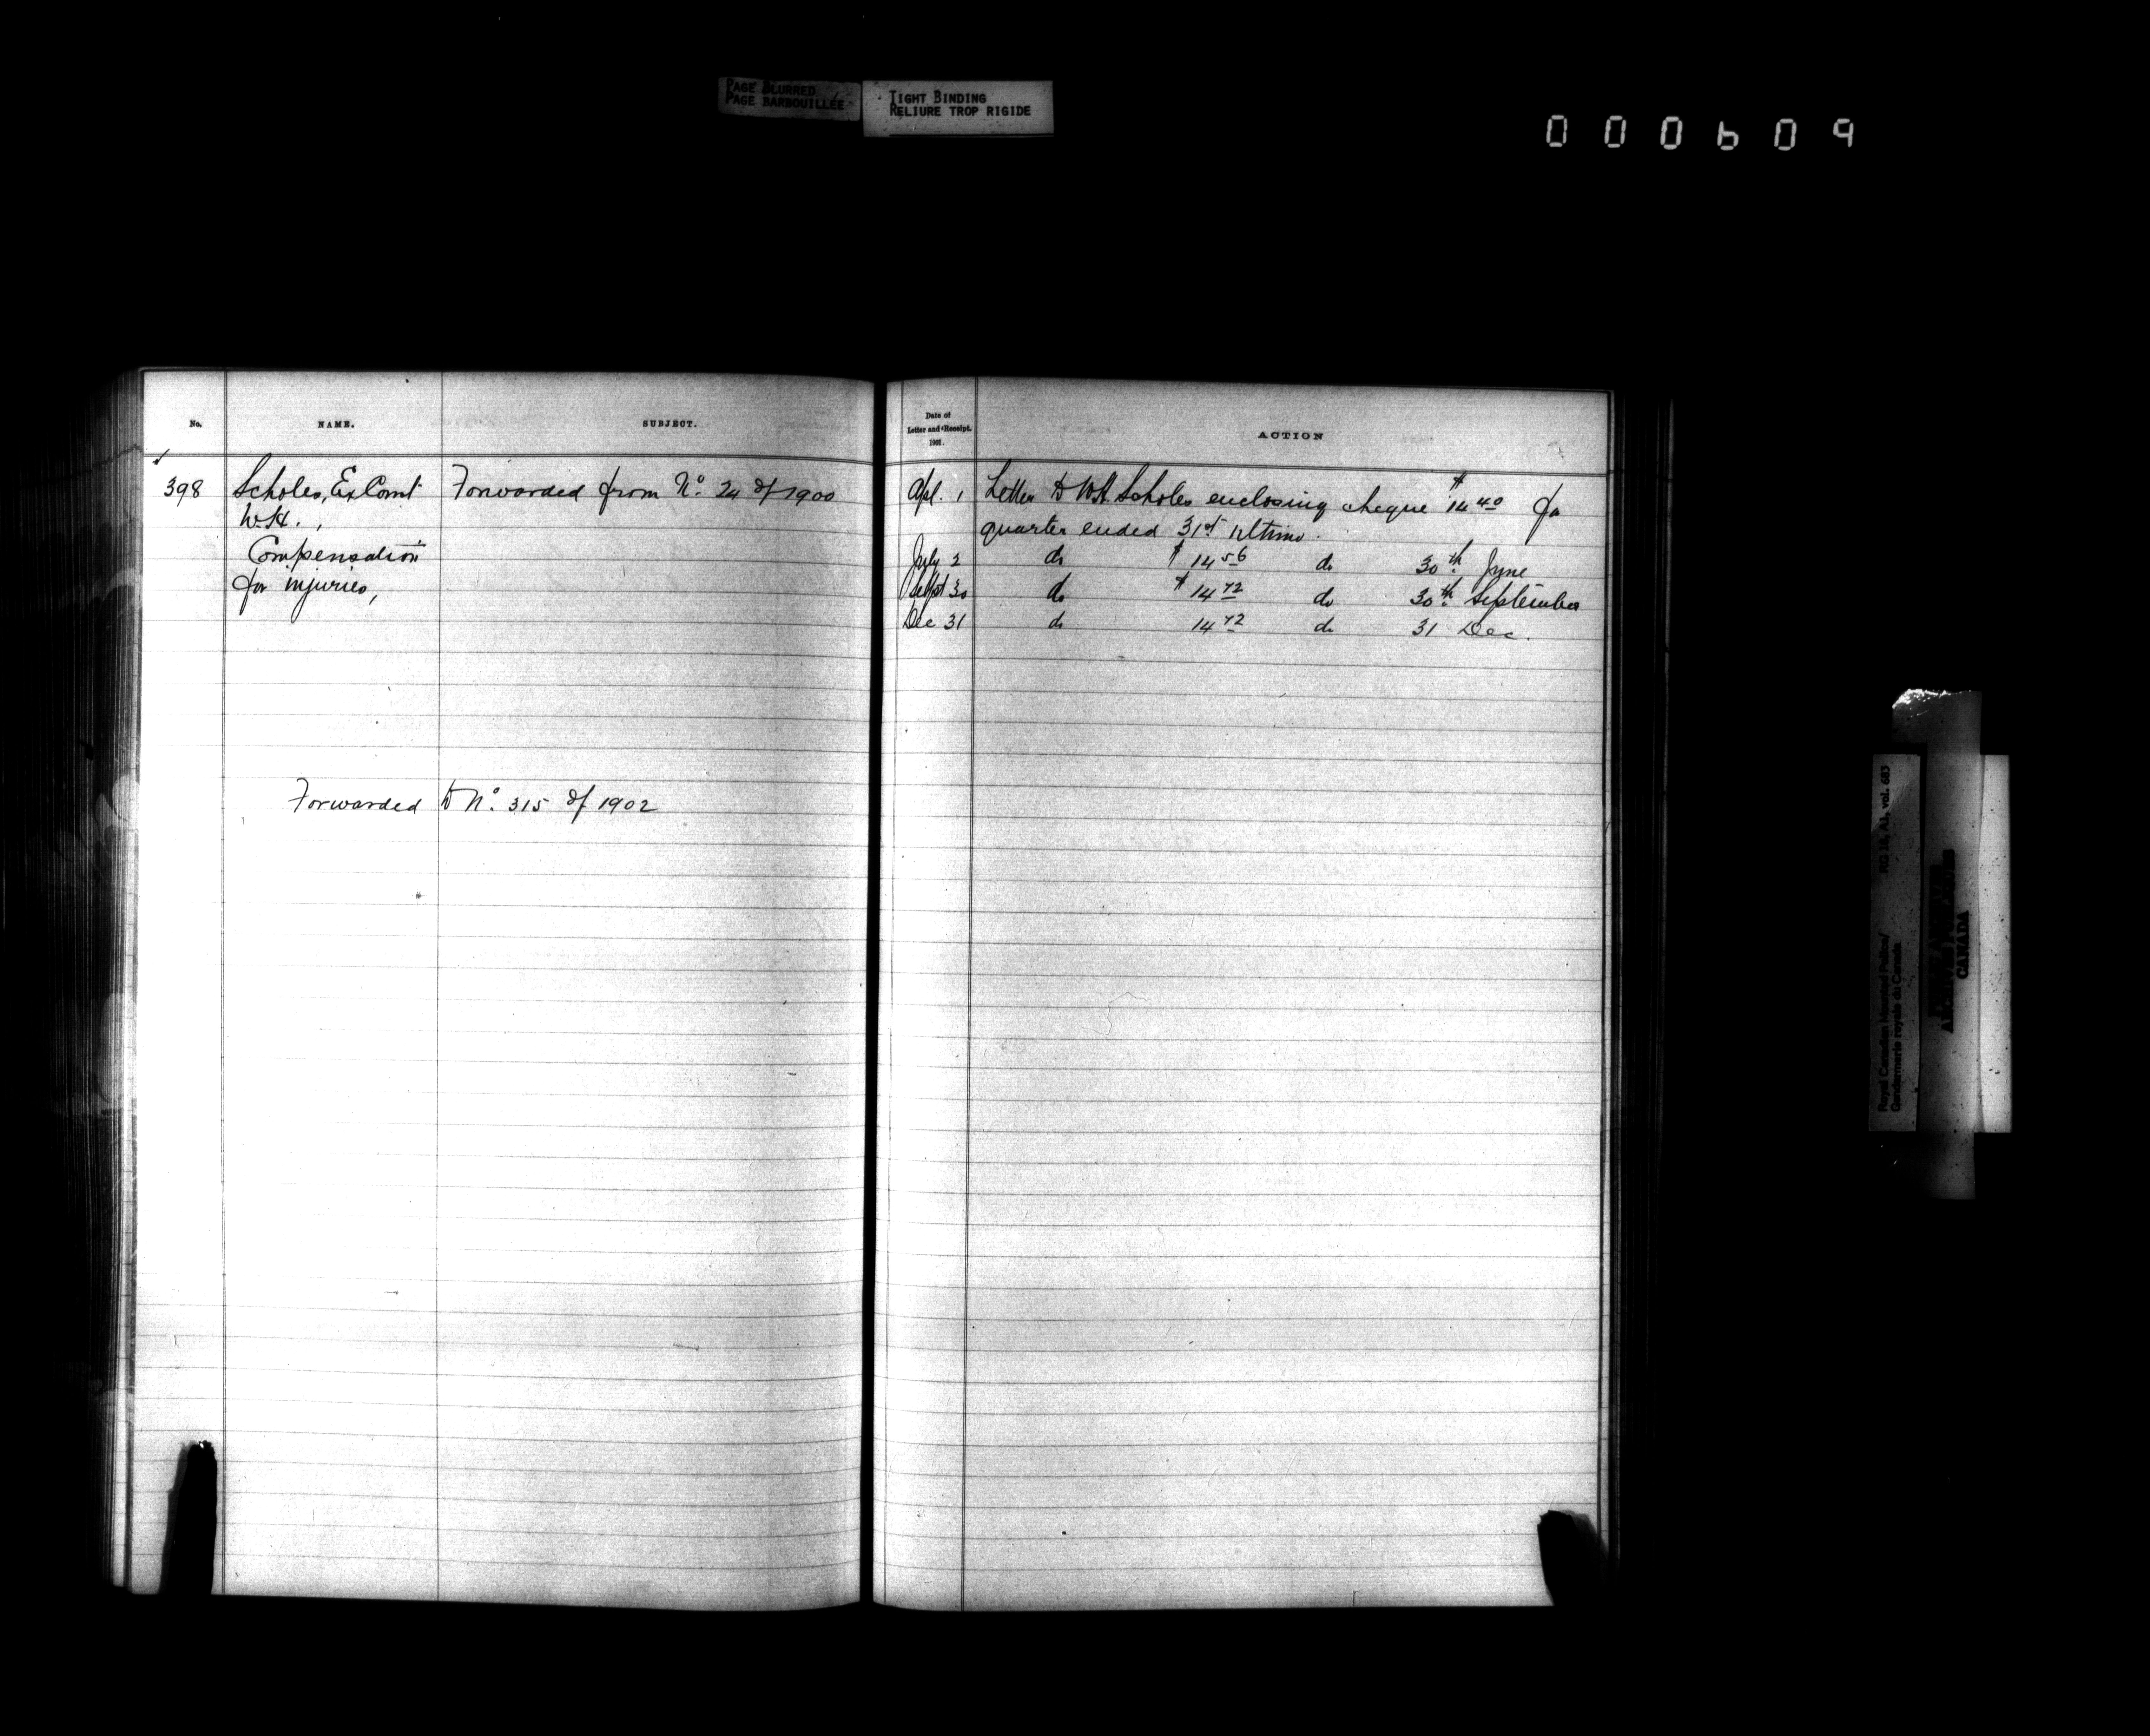 PAGE BLURRED
PAGE BARBOUILLÉE
TIGHT BINDING
RELIURE TROP RIGIDE
000609
No. NAME. SUBJECT.
398 Scholes, Ex Const Forwarded from No. 24 of 1900
W.H.,
Compensation
for injuries,
Forwarded to No. 315 of 1902
Date of
Letter and Receipt.
1901.
ACTION
Apl. 1 Letter to W.H. Scholes enclosing cheque $14 40 for
quarter ended 31st Ultimo.
July 2 do $14 56 do 30th June
Sept 30 do $14 72 do 30th September
Dec 31 do 14 72 do 31 Dec.
Royal Canadian Mounted Police/ RG 18, A1, vol. 683
Gendarmerie royale du Canada
CANADA